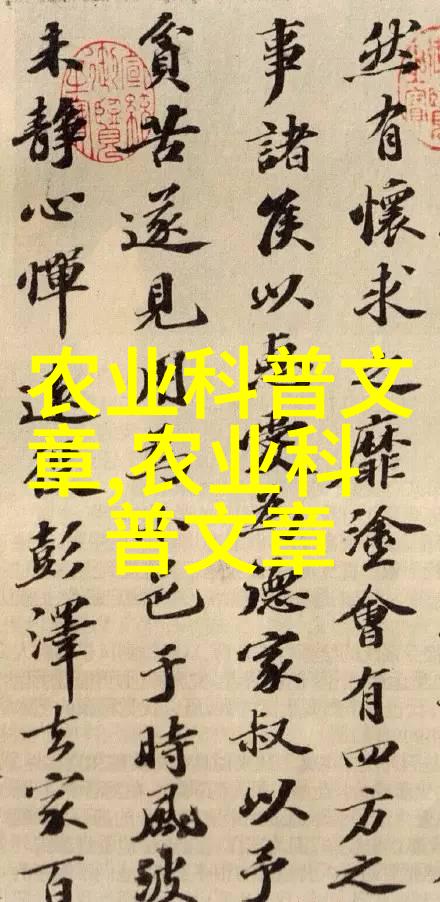 农业科普文
章,农业科
普文章
然有懷求之靡塗會有四方之
事諸侯以惠愛為德家叔以予
貧苦遂見用為小邑于時風波
未静心憚遠役彭澤去家百